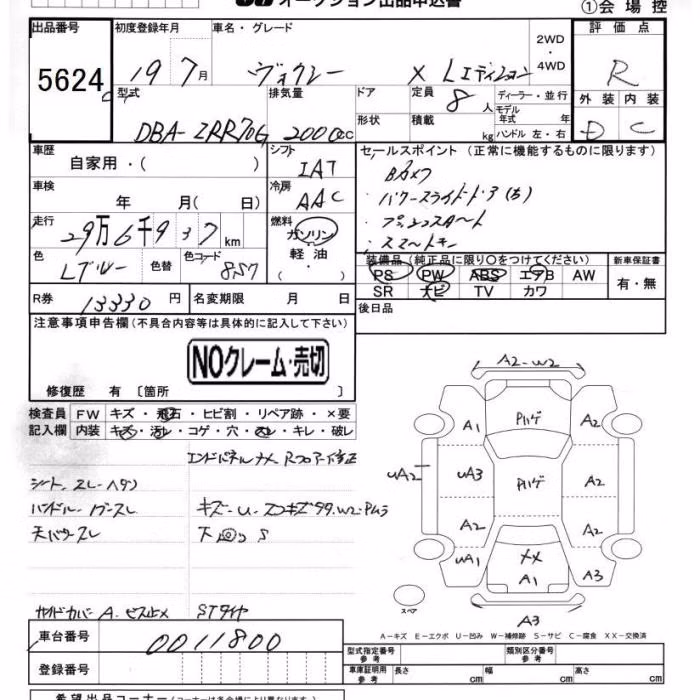 オークション出品申込書
①会場控
出品番号 初度登録年月 車名・グレード 2WD・4WD 評価点
5624 19 7月 ヴォクシー X Lエディション R
型式 排気量 ドア 定員 8人 ディーラー・並行 外装 内装
DBA-ZRR70G 2000cc 形状 積載 kg モデル年式 年 ハンドル 左・右 D C
車歴 自家用・( ) シフト IAT セールスポイント (正常に機能するものに限ります)
冷房 AAC ・Bカメラ
車検 年 月 ( 日) ・パワースライドドア(左)
走行 29万6千937km 燃料 ガソリン・軽油・( ) ・プッシュスタート
・スマートキー
色 Lブルー 色替 色コード 8S7 装備品 (純正品に限り〇をつけてください) 新車保証書
PS PW ABS エアB AW 有・無
SR ナビ TV カワ
R券 13330円 名変期限 月 日 後日品
注意事項申告欄 (不具合内容等は具体的に記入して下さい)
NOクレーム・売切
修復歴 有 〔箇所 〕
検査員 FW キズ・飛石・ヒビ割・リペア跡・×要
記入欄 内装 キズ・汚レ・コゲ・穴・スレ・キレ・破レ
エンドパネルナメ Rフロアー修正
シート スレ・ヘタリ
ハンドル
キズ-U
天
下 S
サイドカバー A. ビス止メ STタイヤ
A2-W2
A1 Pハゲ A2
uA2 uA3 Pハゲ A2
A2 A2
uA1 XX A1 A3
スペア A3
A-キズ E-エクボ U-凹み W-補修跡 S-サビ C-腐食 XX-交換済
車台番号 0011800
型式指定番号 参考 類別区分番号 参考
登録番号 車庫証明用 参考 長さ cm 幅 cm 高さ cm
希望出品コーナー (コーナーは各会場により異なります)